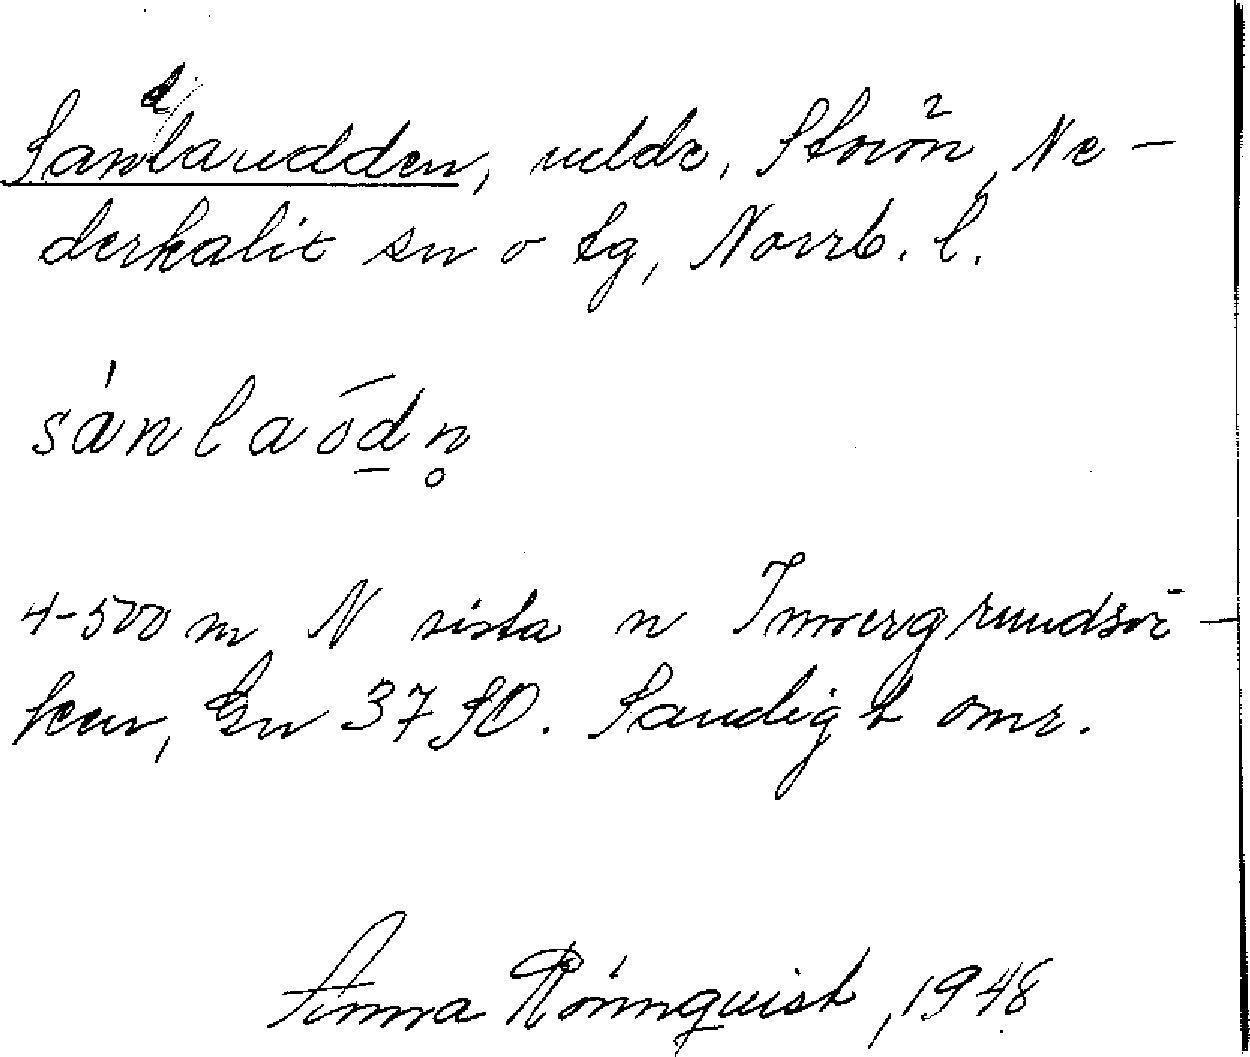 Sandlaudden, udde, Storön, Ne-
derkalix sn o tg, Norrb. l.
sánlaōd̲n̥
4-500 m N sista n i
ken, Ek 37 SO. Sandigt omr.
Anna Rönnquist, 1948